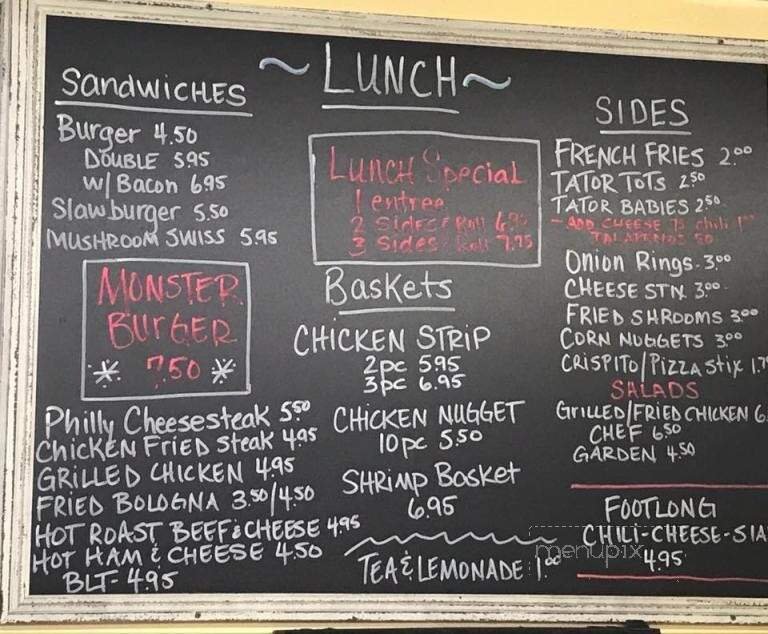 ~ LUNCH ~
SANDWICHES
Burger 4.50
DOUBLE 5.95
W/Bacon 6.95
Slawburger 5.50
MUSHROOM SWISS 5.95
MONSTER
BURGER
* 7.50 *
Philly Cheesesteak 5.50
CHICKEN FRIED Steak 4.95
GRILLED CHICKEN 4.95
FRIED BOLOGNA 3.50/4.50
HOT ROAST BEEF & CHEESE 4.95
HOT HAM & CHEESE 4.50
BLT- 4.95
LUNCH Special
1 entree
2 Sides / Roll 6.95
3 Sides / Roll 7.95
Baskets
CHICKEN STRIP
2pc 5.95
3pc 6.95
CHICKEN NUGGET
10pc 5.50
SHRIMP Basket
6.95
TEA & LEMONADE 1.00
SIDES
FRENCH FRIES 2.00
TATOR TOTS 2.50
TATOR BABIES 2.50
- ADD CHEESE 75 chili 1.00
JALAPENOS 50
Onion Rings - 3.00
CHEESE STX 3.00
FRIED SHROOMS 3.00
CORN NUGGETS 3.00
CRISPITO/Pizza Stix 1.7
SALADS
GRILLED/FRIED CHICKEN 6
CHEF 6.50
GARDEN 4.50
FOOTLONG
CHILI-CHEESE-SLA
4.95
menupix